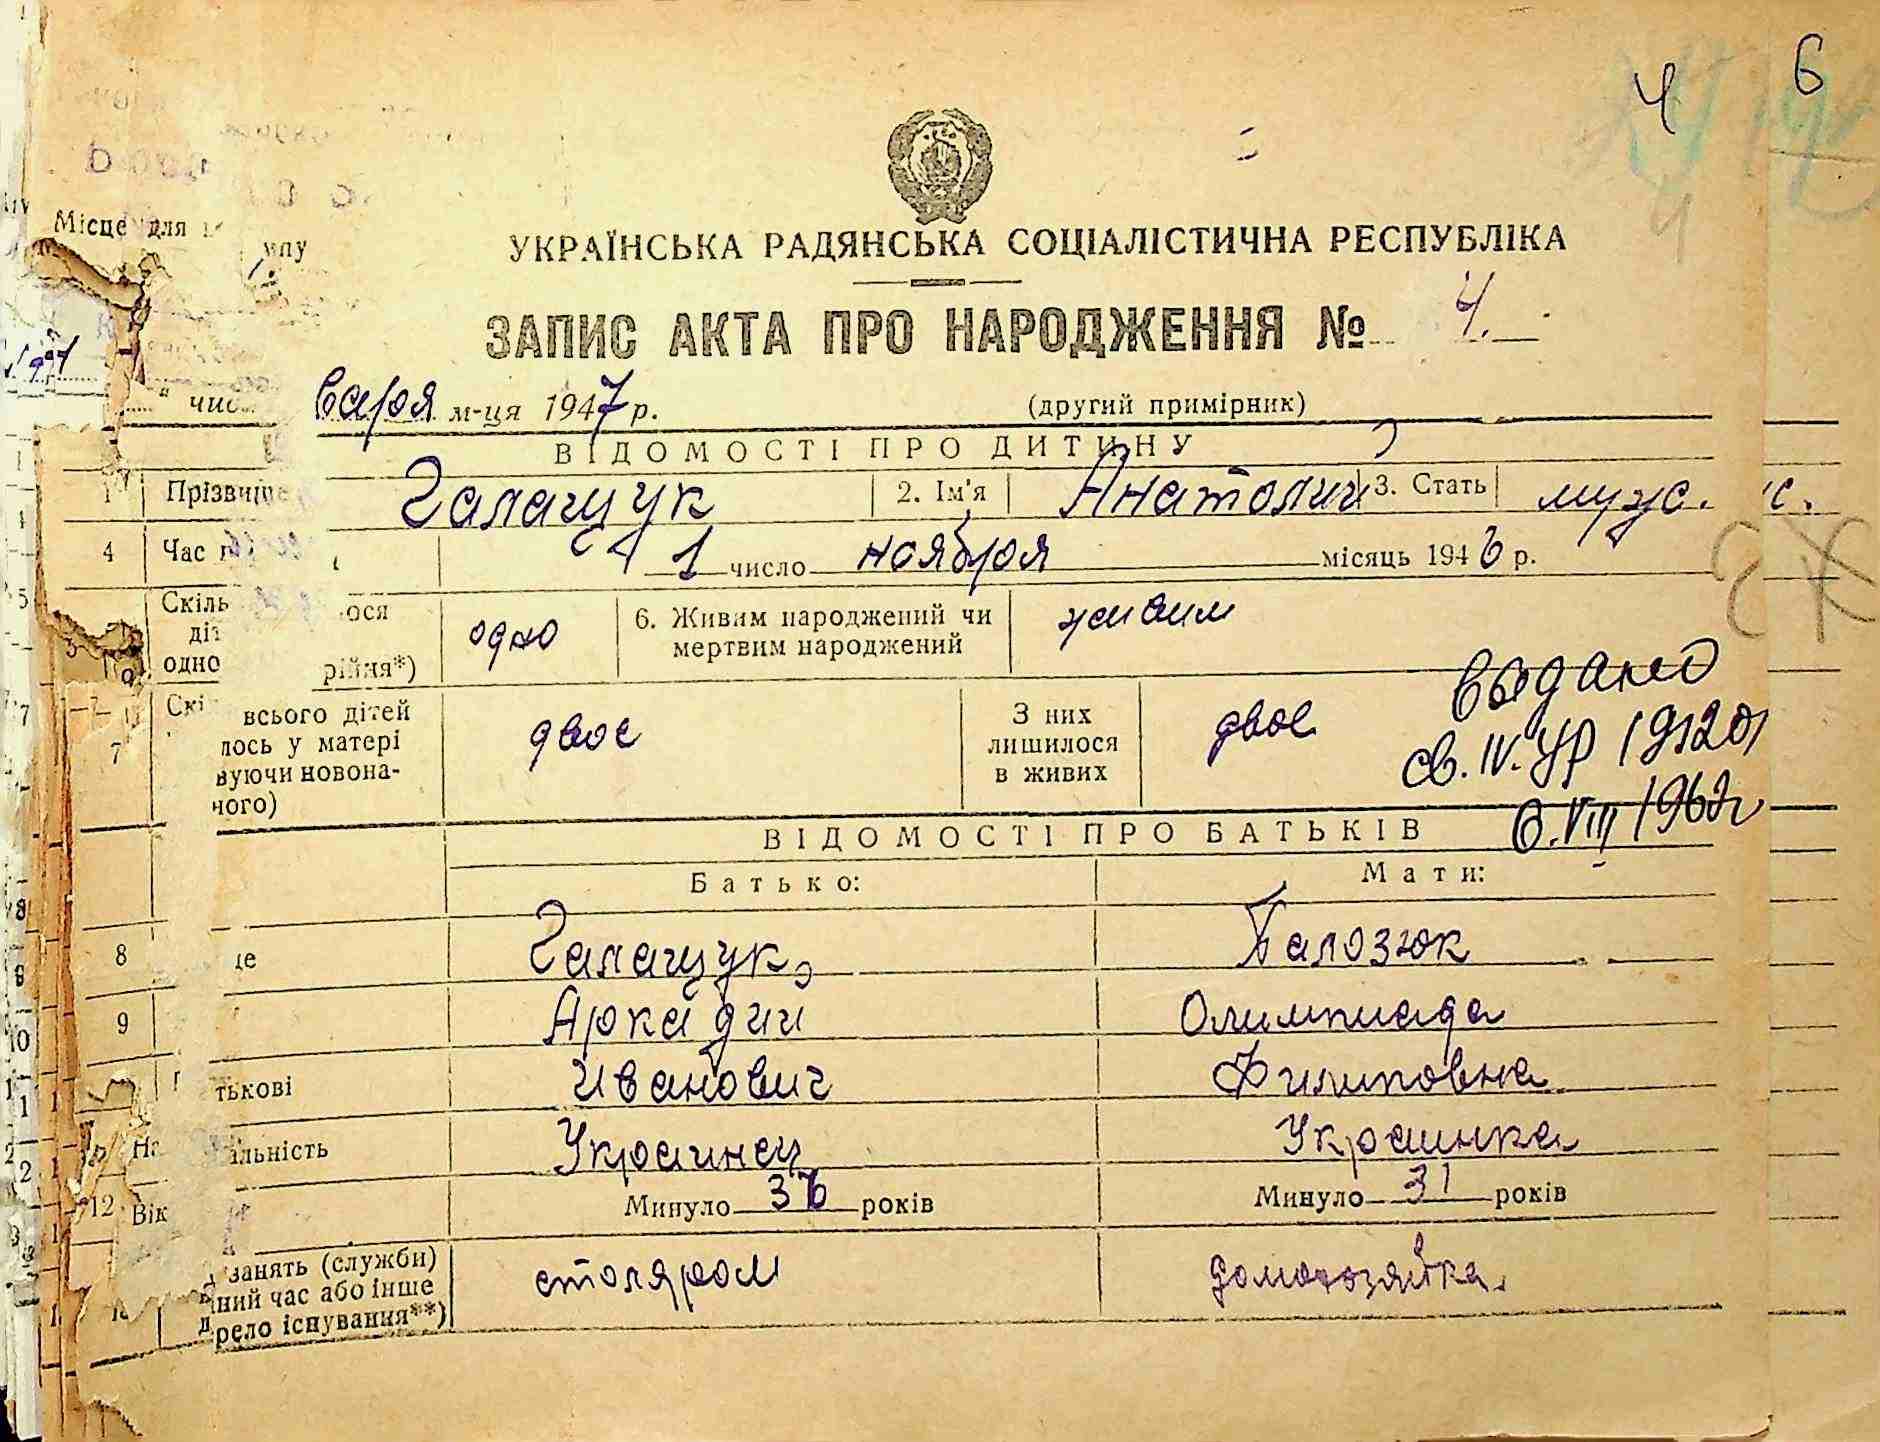 4 6
Місце для
УКРАЇНСЬКА РАДЯНСЬКА СОЦІАЛІСТИЧНА РЕСПУБЛІКА
ЗАПИС АКТА ПРО НАРОДЖЕННЯ № 4.
варя м-ця 1947 р. (другий примірник)
ВІДОМОСТІ ПРО ДИТИНУ
1 Прізвище Галащук 2. Ім'я Анатолий 3. Стать муж.
4 Час 1 число ноября місяць 1946 р.
Скіль ося
діт
одно рійня*) одно 6. Живим народжений чи мертвим народжений живим
7 Скі всього дітей
лось у матері
вуючи новона-
ного) двое З них лишилося в живих двое
выдано
св. IV. УР
6.VIII 1962г
ВІДОМОСТІ ПРО БАТЬКІВ
Батько: Мати:
8 ще Галащук, Балозюк
9 Аркадий Олимпиада
тькові Иванович Филиповна
На альність Украинец Украинка
12 Вік Минуло 36 років Минуло 31 років
занять (служби)
ний час або інше
рело існування**) столяром домохозяйка.